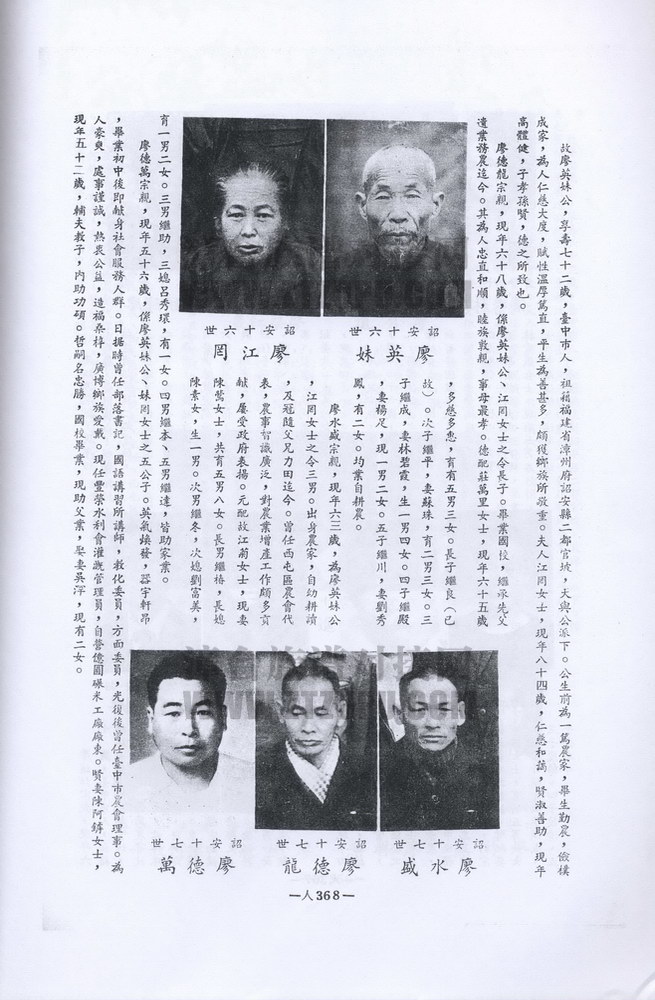 故廖英妹公,享壽七十二歲,臺中市人,祖籍福建省漳州府詔安縣二都官坡,大與公派下。公生前為一篤農家,畢生勤農,儉樸
成家,為人仁慈大度,賦性溫厚篤直,平生為善甚多,頗獲鄉族所敬重。夫人江罔女士,現年八十四歲,仁慈和藹,賢淑善助,現年
高體健,子孝孫賢,德之所致也。
廖德龍宗親,現年六十八歲,係廖英妹公、江罔女士之令長子。畢業國校,繼承先父
遺業務農迄今。其為人忠直和順,睦族敦親,事母最孝。德配莊萬里女士,現年六十五歲
,多慈多惠,育有五男三女。長子繼良(已
故)。次子繼平,妻蘇珠,育二男三女。三
子繼成,妻林碧霞,生一男四女。四子繼殿
,妻楊足,現一男二女。五子繼川,妻劉秀
鳳,有二女。均業自耕農。
廖水盛宗親,現年六三歲,為廖英妹公
,江罔女士之令三男。出身農家,自幼耕讀
,及冠隨父兄力田迄今。曾任西屯區農會代
表,農事智識廣泛,對農業增產工作頗多貢
獻,屢受政府表揚。元配故江菊女士,現妻
陳鶯女士,共育五男八女。長男繼椿,長媳
陳素女,生一男。次男繼冬,次媳劉富美,
育一男二女。三男繼助,三媳呂秀環,有一女。四男繼本、五男繼達,皆助家業。
廖德萬宗親,現年五十六歲,係廖英妹公、妹罔女士之五公子。英氣煥發,器宇軒昂
,畢業初中後即獻身社會服務人群。日据時曾任部落書記,國語講習所講師,教化委員,方面委員,光復後曾任臺中市農會理事。為
人豪爽,處事謹誠,熱衷公益,造福桑梓,廣博鄉族愛戴。現任豐榮水利會灌溉管理員,自營億圓碾米工廠廠東。賢妻陳阿女士,
現年五十二歲,輔夫教子,內助功碩。哲嗣名忠勝,國校畢業,現助父業,娶妻吳,現有二女。
詔安十六世
廖英妹
詔安十六世
廖江罔
詔安十七世
廖水盛
詔安十七世
廖德龍
詔安十七世
廖德萬
—人368—